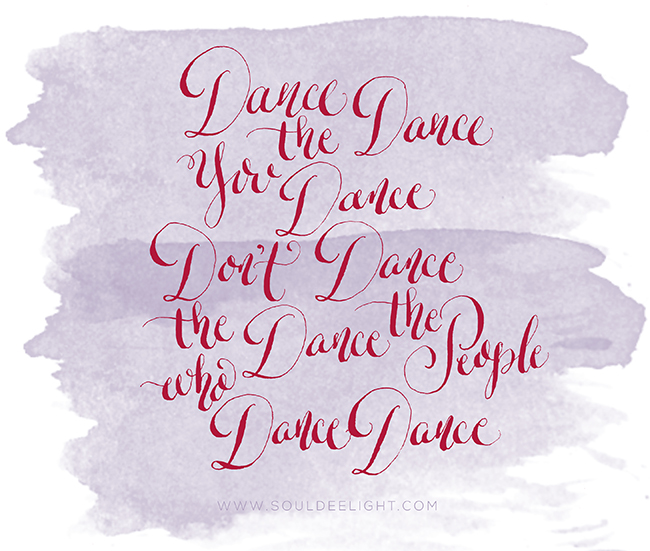 Dance
the Dance
You Dance
Don't Dance
the Dance the
who People
Dance Dance
WWW.SOULDEELIGHT.COM